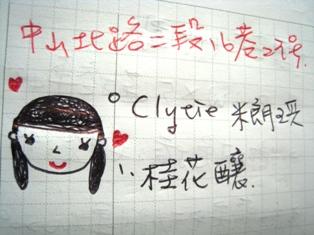 中山北路二段16巷2號.
Clytie 米朗琪
桂花釀.